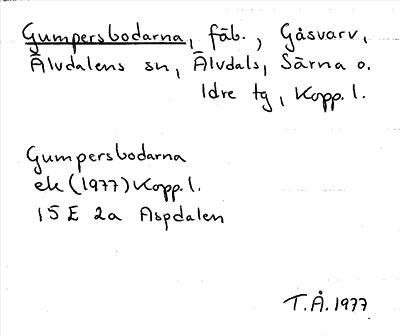 Gumpersbodarna, fäb., Gåsvarv,
Älvdalens sn, Älvdals, Särna o.
Idre tg, Kopp. l.
Gumpersbodarna
ek (1977) Kopp. l.
15 E 2a Aspdalen
T.Å. 1977